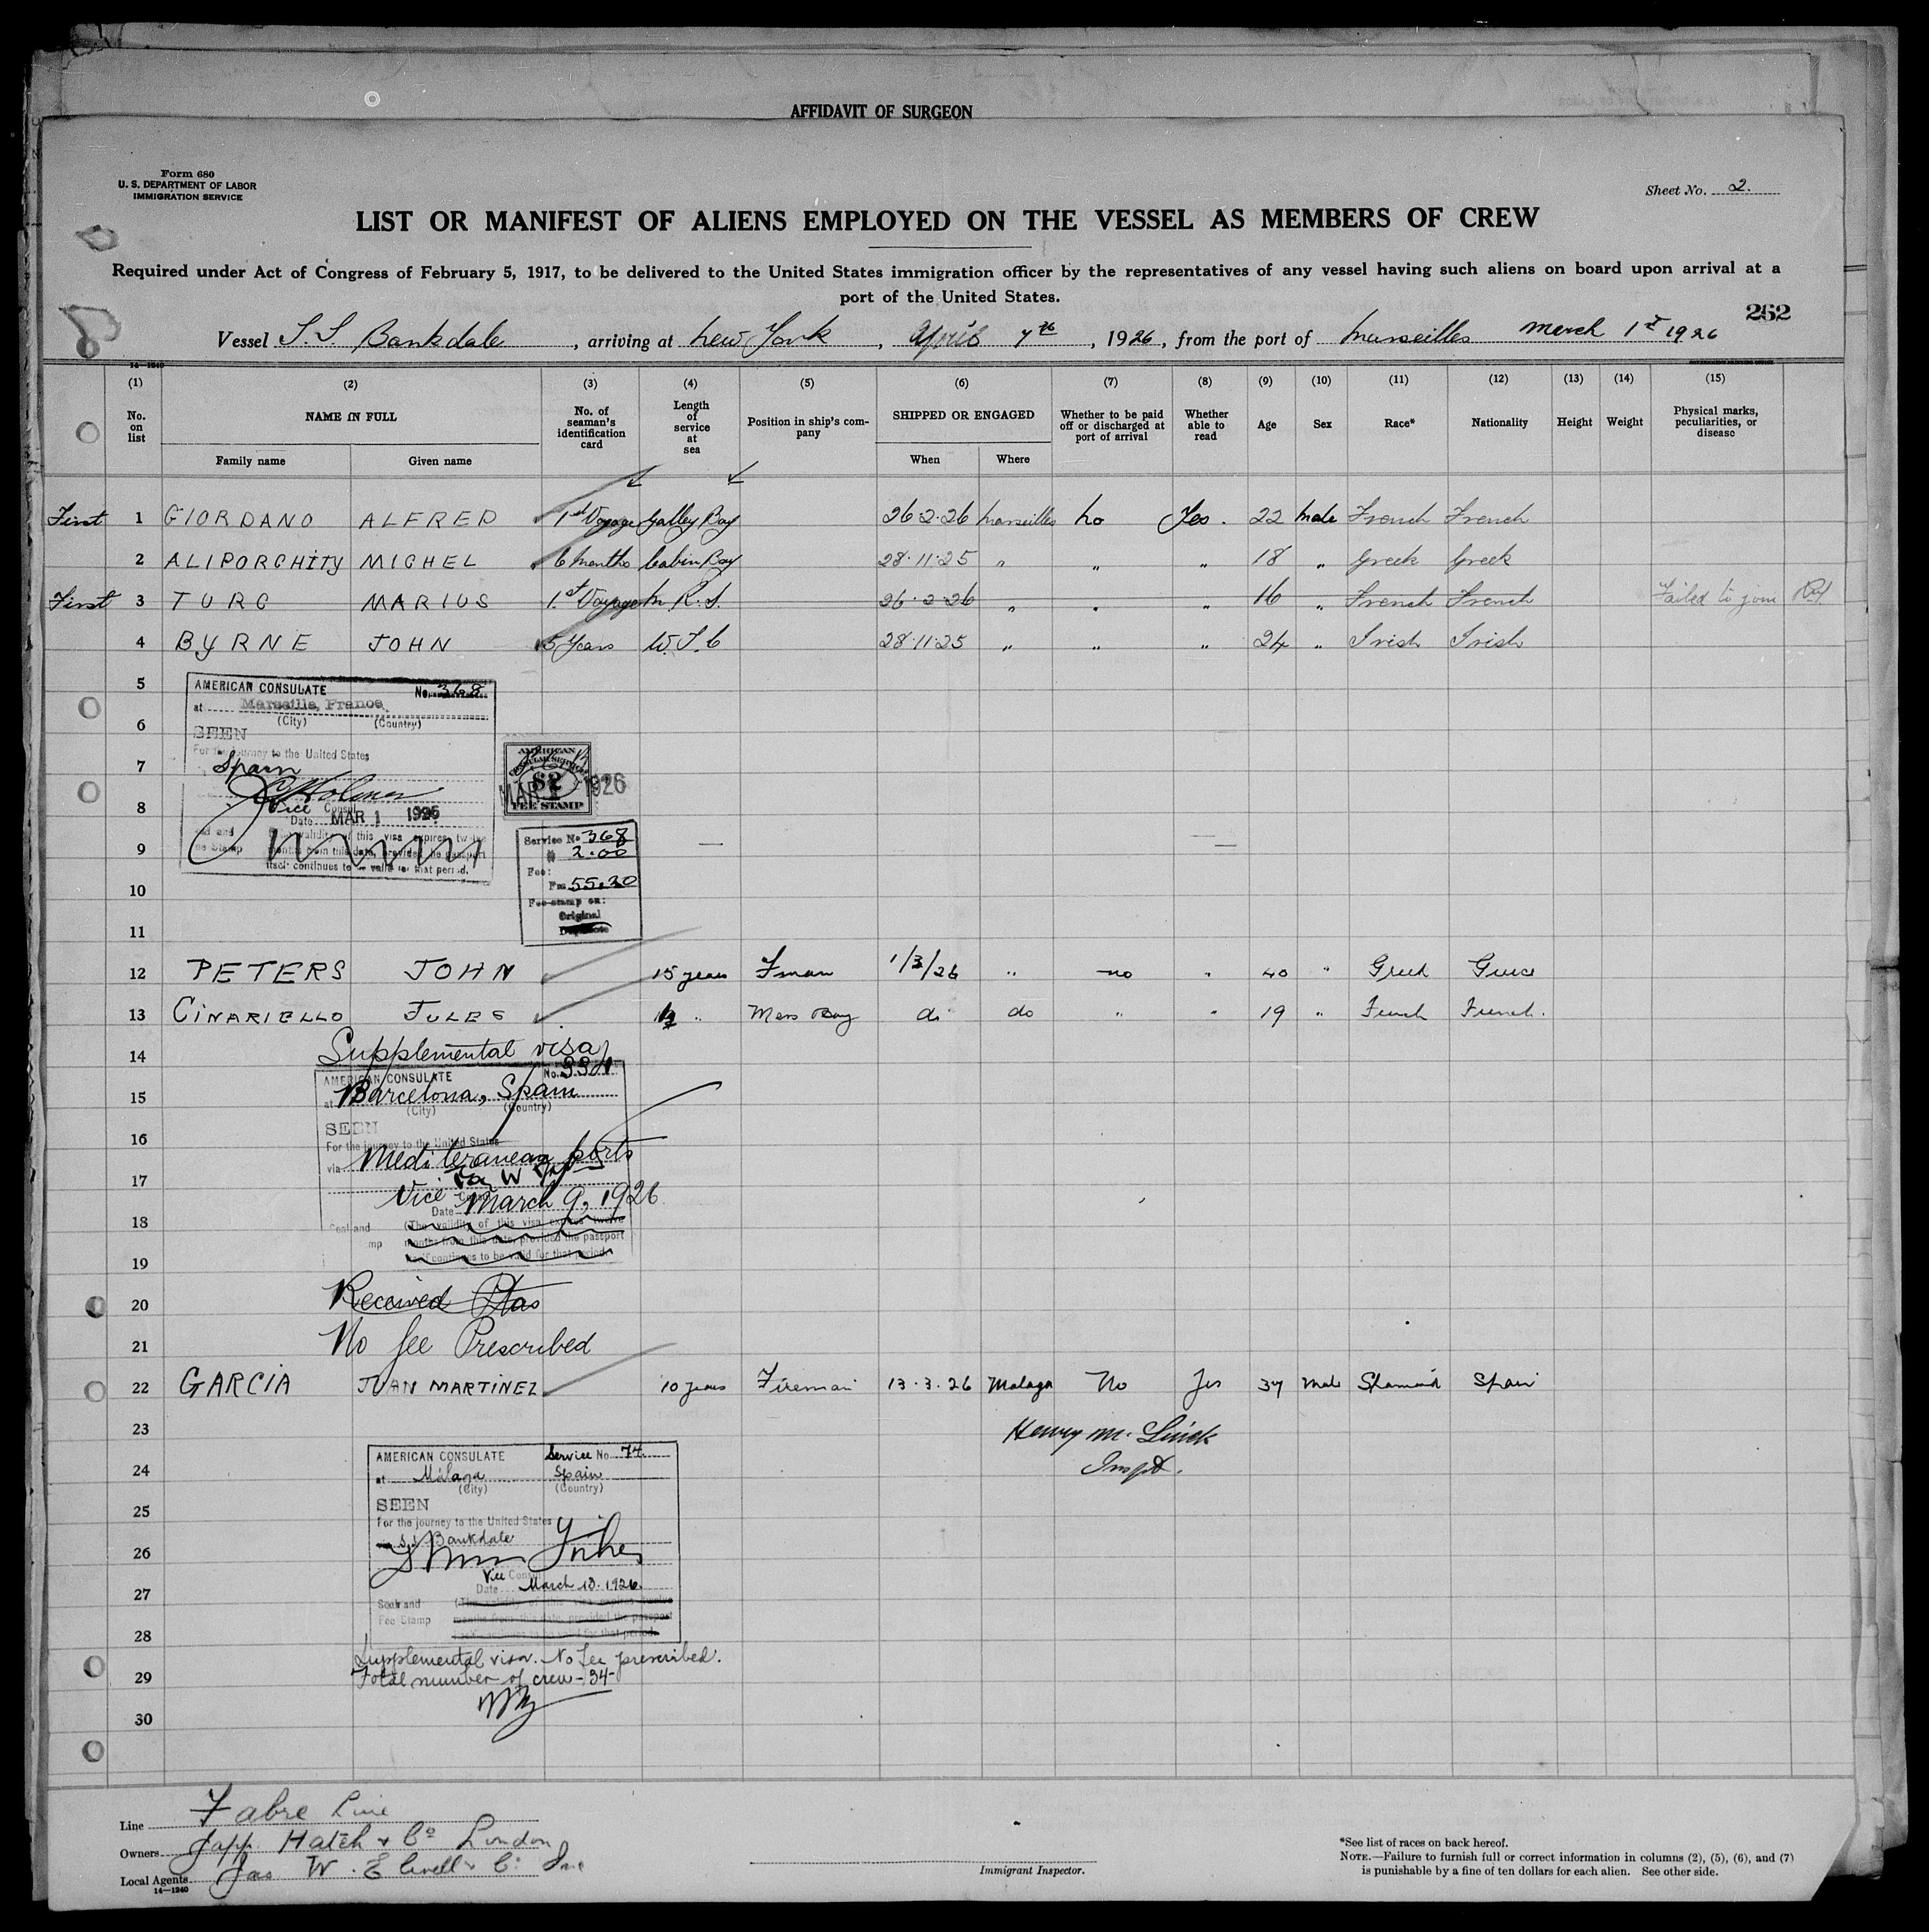 AFFIDAVIT OF SURGEON
Form 680
U. S. DEPARTMENT OF LABOR
IMMIGRATION SERVICE
Sheet No. 2.
LIST OR MANIFEST OF ALIENS EMPLOYED ON THE VESSEL AS MEMBERS OF CREW
Required under Act of Congress of February 5, 1917, to be delivered to the United States immigration officer by the representatives of any vessel having such aliens on board upon arrival at a
port of the United States.
252
Vessel S.S Bankdale, arriving at New York, April 7th, 1926, from the port of Marseilles March 1st 1926
14-1240
(1) (2) (3) (4) (5) (6) (7) (8) (9) (10) (11) (12) (13) (14) (15)
No. on list
NAME IN FULL
Family name
Given name
No. of seaman's identification card
Length of service at sea
Position in ship's company
SHIPPED OR ENGAGED
When
Where
Whether to be paid off or discharged at port of arrival
Whether able to read
Age
Sex
Race*
Nationality
Height
Weight
Physical marks, peculiarities, or disease
First 1 GIORDANO ALFRED 1st Voyage Galley Boy 26.2.26 Marseilles No Yes. 22 Male French French
2 ALIPORGHITY MICHEL 6 Months Cabin Boy 28.11.25 " " " 18 " Greek Greek
First 3 TURC MARIUS 1st Voyage M. R. S. 26.2.26 " " " 16 " French French Failed to join
4 BYRNE JOHN 5 Years W. T. C 28.11.25 " " " 24 " Irish Irish
5
AMERICAN CONSULATE No. 368
at Marseille, France
(City) (Country)
6
SEEN
For the journey to the United States
7
Spain
Holmes
8
Vice Consul
Date MAR 1 1926
9
The validity of this visa expires twelve
months from this date, provided the passport
itself continues to be valid for that period.
AMERICAN
CONSULAR SERVICE
$2
FEE STAMP
MAR 1 1926
Service No 368
$ 2.00
Fee:
Frs 55.20
Fee-stamp on:
Original
Duplicate
10
11
12 PETERS JOHN 15 years Fman 1/3/26 " no " 40 " Greek Greece
13 CINARIELLO JULES " Mess Boy do do " " 19 " French French.
14
Supplemental visa
AMERICAN CONSULATE No.
15
at Barcelona, Spain
(City) (Country)
16
SEEN
For the journey to the United States
via Mediteranean ports
17
Vice Consul
Date March 9, 1926
18
Seal and (The validity of this visa expires twelve
months from this date, provided the passport
itself continues to be valid for that period.
19
20
Received Ptas
21
No fee Prescribed
22 GARCIA JUAN MARTINEZ 10 years Fireman 13.3.26 Malaga No Yes 37 Male Spaniard Spain
23
Henry M. Linck
24
Inspt.
AMERICAN CONSULATE Service No 74.
at Málaga Spain
(City) (Country)
25
SEEN
For the journey to the United States
26
via S.S Bankdale
27
Vice Consul
Date March 13. 1926.
Seal and (The validity of this visa expires twelve
Fee Stamp months from this date, provided the passport
itself continues to be valid for that period.
28
Supplemental visa. No fee prescribed.
29
Total number of crew - 34-
30
Line Fabre Line
Owners Japp Hatch & Co London
Local Agents Jas W. Elwell & Co Inc
14-1240
Immigrant Inspector.
*See list of races on back hereof.
NOTE.—Failure to furnish full or correct information in columns (2), (5), (6), and (7)
is punishable by a fine of ten dollars for each alien. See other side.